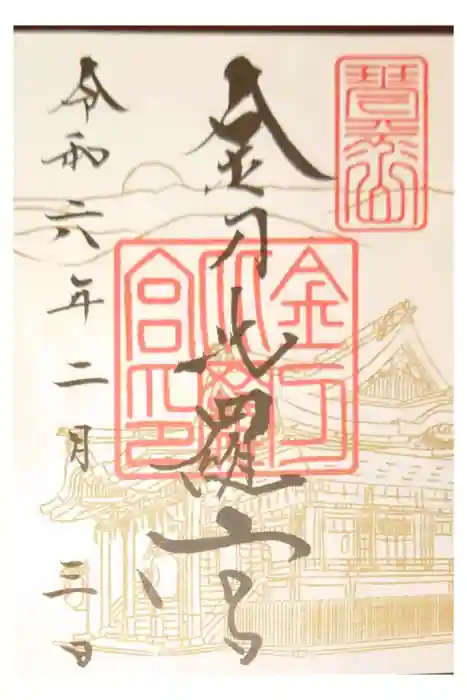 琴平山
金刀比羅宮
金刀
比羅
宮印
令和六年二月三日